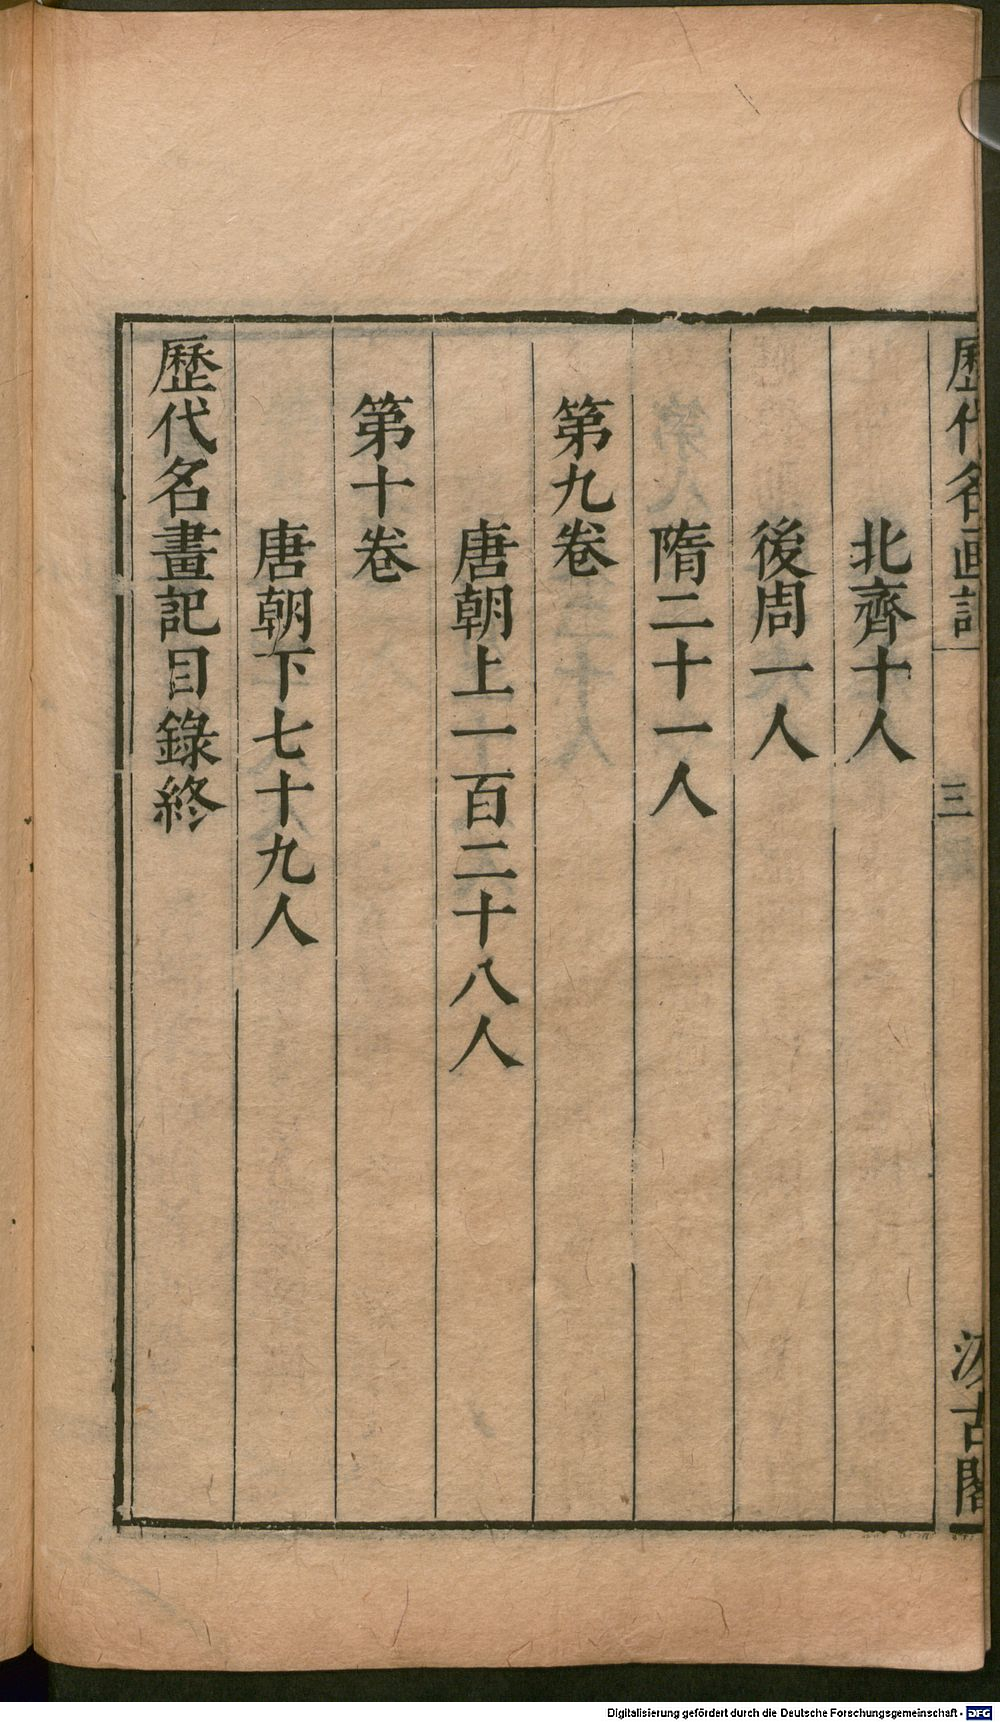 歷代名画記
三
汲古閣
北齊十人
後周一人
隋二十一人
第九卷
唐朝上一百二十八人
第十卷
唐朝下七十九人
歷代名畫記目錄終
Digitalisierung gefördert durch die Deutsche Forschungsgemeinschaft - DFG